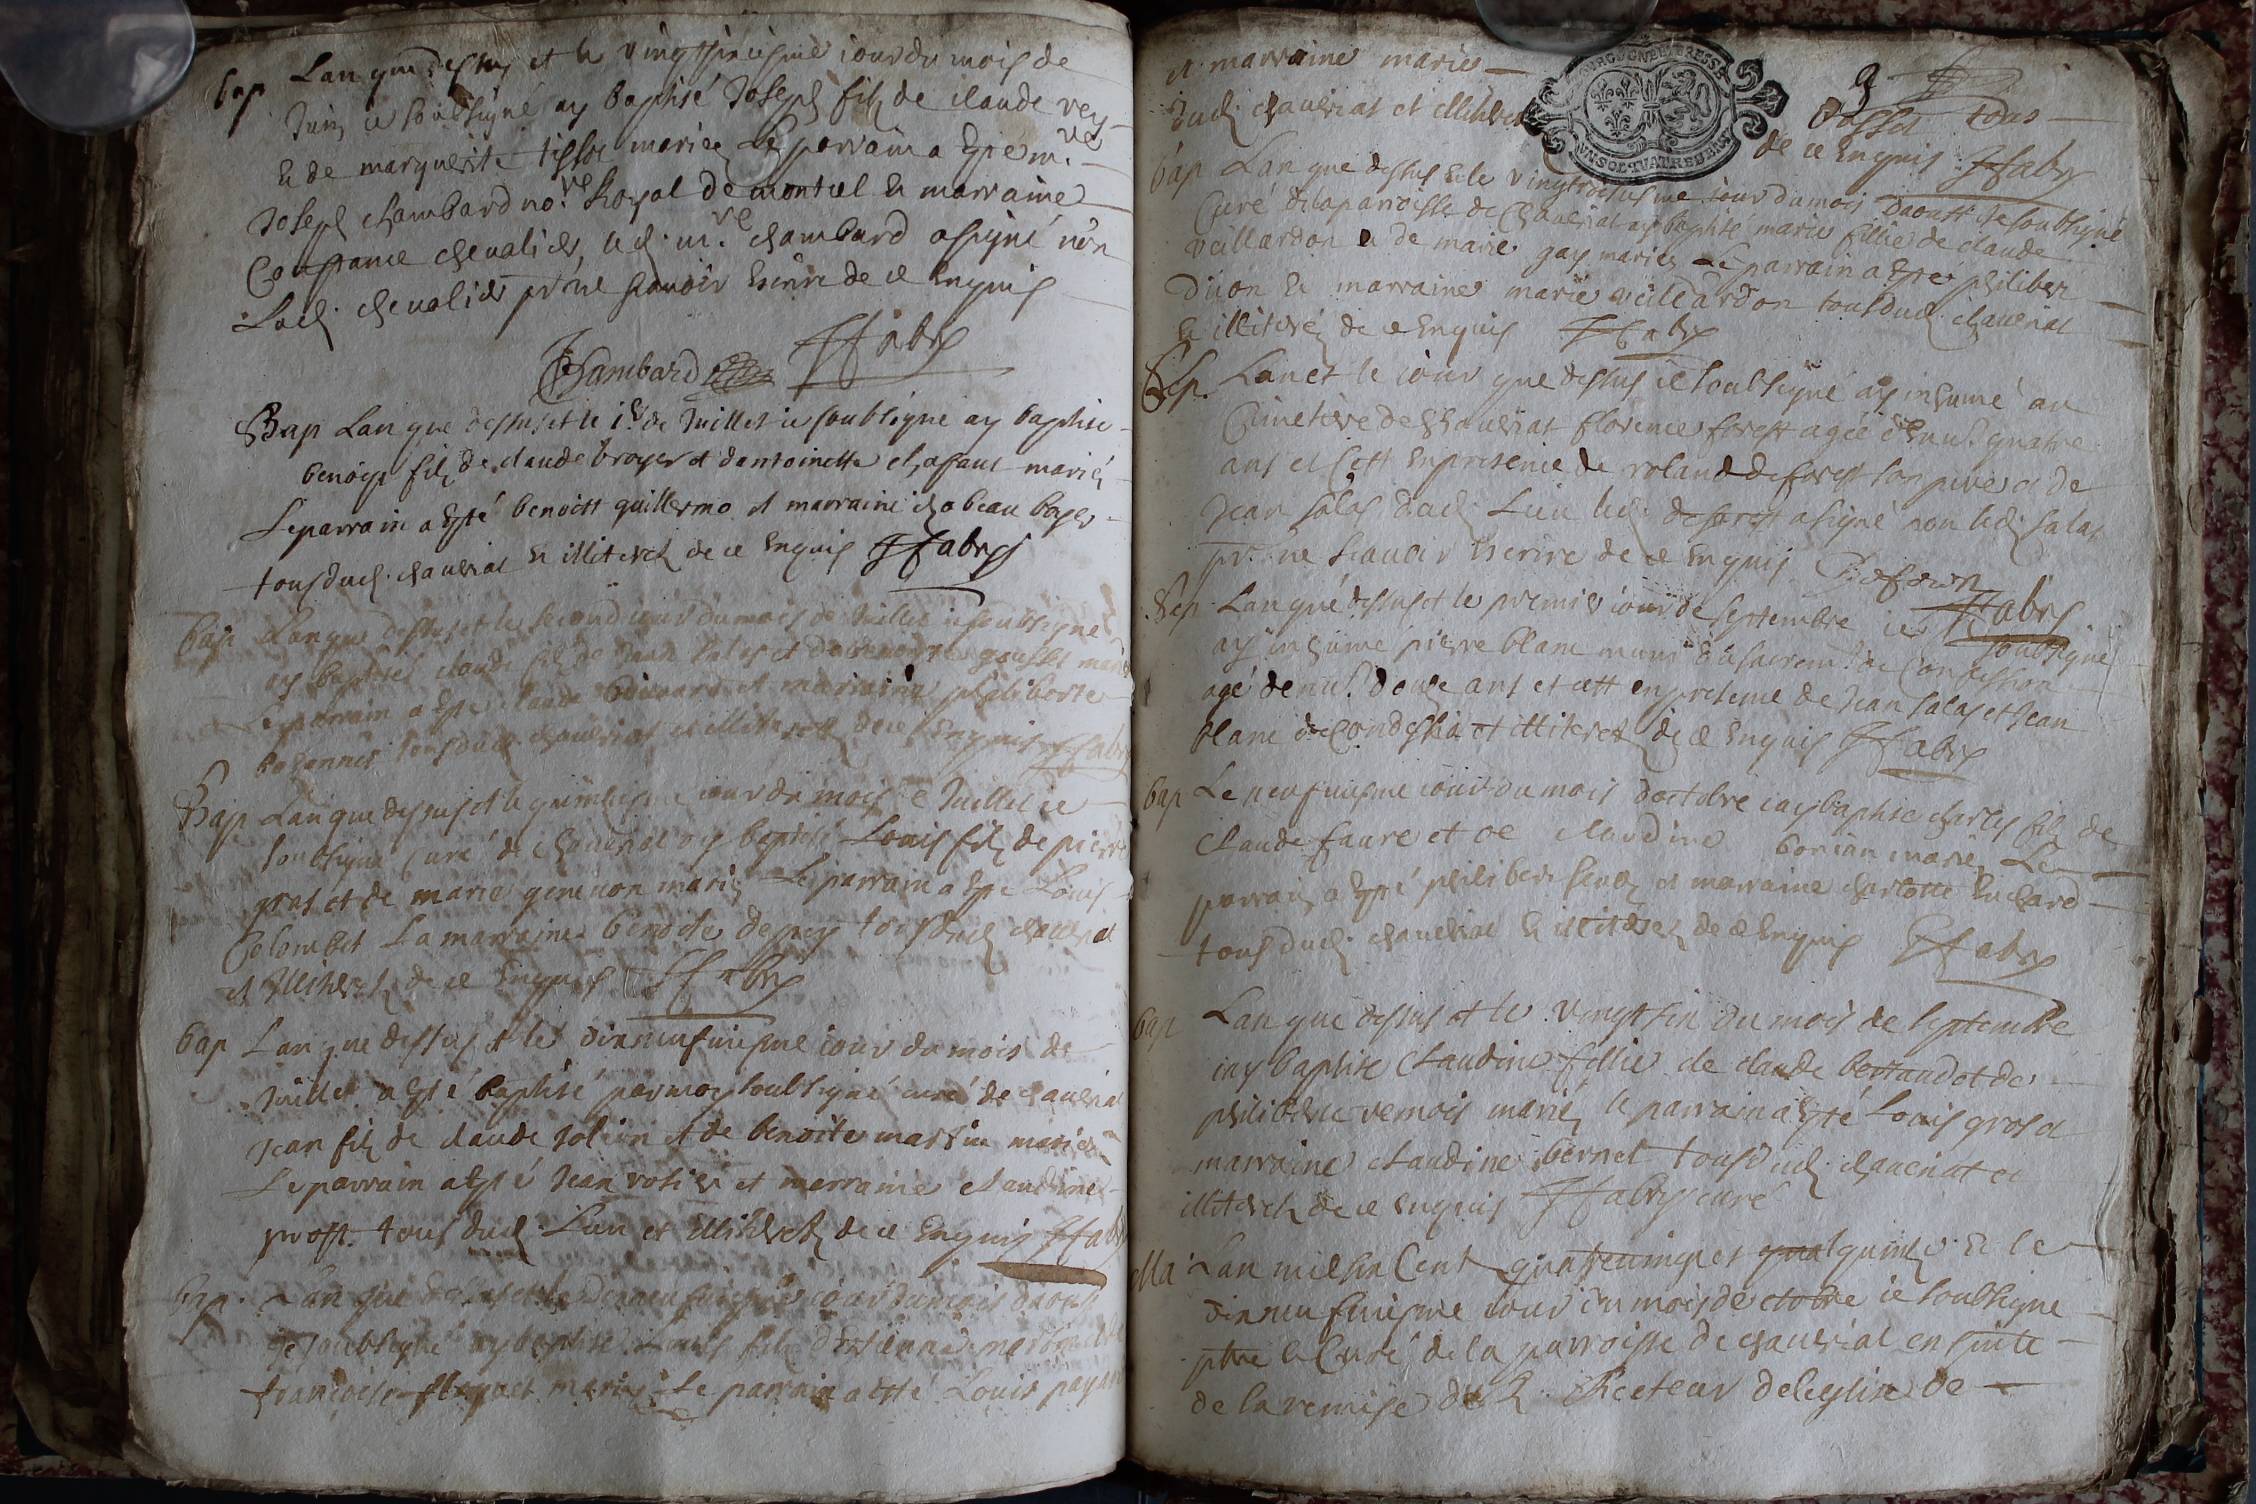 bap Lan que dessus et le vingtsixiesme iour du mois de
Juin ie soubsigné ay baptisé Joseph filz de claude vey
& de marguerite tissot mariez Le parrain a Esté m.re
Joseph chambard no.re Royal de montiel & marraine
Constance chevalier, led. m.re chambard a signé non
Lad. chevalier pr ne scavoir Escrire de ce Enquis
Chambard Ffabry
Bap Lan que dessus et le 1.er de Juillet ie soubsigné ay baptisé
benoist filz de claude broyer et dantoinette chafaut mariéz
Le parrain a Esté benoist guillermo et marraine isabeau boyer
tous dud. chaveriat & illiterez de ce Enquis Ffabry
bap Lan que dessus et le second iour du mois de Juillet ie soubsigné
ay baptisé claude filz de Jean salas et de benoiste gousset mariez
Le parrain a Esté claude et marraine philiberte
tous dud. chaveriat et illiterez de ce Enquis Ffabry
Bap Lan que dessus et le quinziesme iour du mois de Juillet ie
soubsigné Curé de chaveriat ay baptisé Louis filz de pierre
gros et de marie genenon mariez Le parrain a Esté Louis
Colombet La marraine benoite deprey tous dud. chaveriat
et Illiterez de ce Enquis Ffabry
bap Lan que dessus et le dixneufuiesme iour du mois de
Juillet a Esté baptisé par moy soubsigné curé de chaveriat
Jean filz de claude Jolion et de benoite martin mariez
Le parrain a Esté Jean rotier et marraine claudine
prost tous dud. Lieu et illiterez de ce Enquis Ffabry
bap. Lan que dessus et le dixneufuiesme iour du mois daoust
ie soubsigné ay baptisé Louis filz destienne et de
francoise mariez Le parrain a esté Louis payan
et marraine marie
dud. chaveriat et illiterez
BOURGOGNE BRESSE
VN SOL QVATRE DEN
3
tous
de ce Enquis Ffabry
bap Lan que dessus & le vingtroisiesme iour du mois daoust ie soubsigné
Curé de la parroisse de Chaveriat ay baptisé marie fillie de claude
veillardon & de marie gay mariez Le parrain a Esté philibert
Dijon & marraine marie veillardon tous dud. chaveriat
& illiterez de ce Enquis Ffabry
Sep. Lan et le iour que dessus ie soubsigné ay inhumé au
Cimetiere de Chaveriat florence forest agée denv. quatre
ans et Cest En presence de roland deforest son pere et de
Jean salas dud. Lieu led. deforest a signé non led. salas
pr. ne scavoir Escrire de ce Enquis Deforest
Ffabry
Sep Lan que dessus et le premier iour de septembre ie soubsigné
ay inhumé pierre blanc muni du sacrem.t de Confession
agé denv. douze ans et cest en presence de Jean salas et Jean
blanc de Condessia et illiterez de ce Enquis Ffabry
bap Le neufuiesme iour du mois doctobre iay baptisé charles filz de
Claude faure et de claudine bonian mariez Le
parrain a Esté philibert et marraine charlotte Euchard
tous dud. chaveriat & illiterez de ce Enquis Ffabry
bap Lan que dessus et le vingtsix du mois de septembre
iay baptisé Claudine fillie de claude bertaud et de
philiberte vernois mariez le parrain a Esté Louis gros et
marraine claudine bernet tous dud. chaveriat et
illiterez de ce Enquis Ffabry curé
Ma Lan mil six Cent quatrevingt et quinze & le
dixneufuiesme iour du mois de octobre ie soubsigné
ptre & Curé de la parroisse de chaveriat en suite
de la remise de Recteur de leglise de